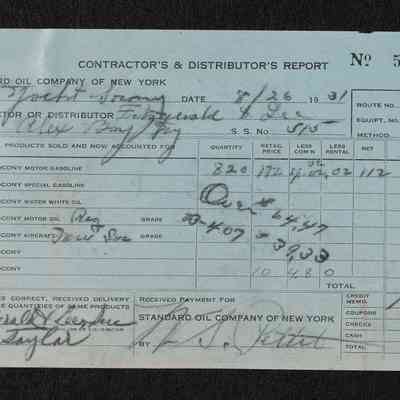 CONTRACTOR'S & DISTRIBUTOR'S REPORT
Nº 5
ARD OIL COMPANY OF NEW YORK
Yacht Socony DATE 8/26 1931
ROUTE NO.
CTOR OR DISTRIBUTOR Fitzgerald & Lee
EQUIPT. NO.
Alex Bay NY S. S. No. 515
METHOD
PRODUCTS SOLD AND NOW ACCOUNTED FOR QUANTITY RETAIL PRICE LESS COM'N LESS RENTAL NET
OCONY MOTOR GASOLINE 820 172 02 112
OCONY SPECIAL GASOLINE
OCONY WATER WHITE OIL Over 64.47
OCONY MOTOR OIL Reg GRADE 39.33
OCONY AIRCRAFT GRADE
OCONY 10 4.80
OCONY TOTAL
IS CORRECT, RECEIVED DELIVERY
E QUANTITIES OF SAME PRODUCTS
RECEIVED PAYMENT FOR
STANDARD OIL COMPANY OF NEW YORK
CREDIT MEMO.
COUPONS
CHECKS
CASH
TOTAL
Taylor